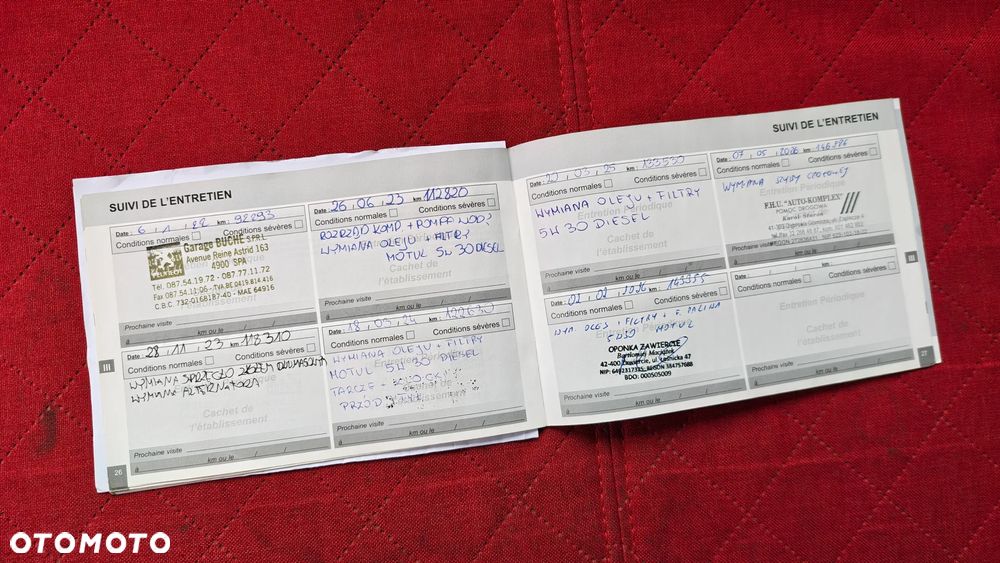 SUIVI DE L'ENTRETIEN
Date: 6 . 1 . 22 km: 92293
Conditions normales Conditions sévères
Garage BUCHE S.P.R.L.
Avenue Reine Astrid 163
4900 SPA
Tél. 087.54.19.72 - 087.77.11.72
Prochaine visite
à km ou le / /
Date: 26 . 06 . 23 km: 112820
Conditions normales Conditions sévères
ROZRZĄD KOMP + POMPA WODY
WYMIANA OLEJU + FILTRY
MOTUL 5W30 DIESEL
Cachet de
l'établissement
Prochaine visite
à km ou le / /
Date: 28 . 11 . 23 km: 118310
Conditions normales Conditions sévères
WYMIANA SPRZĘGŁO
WYMIANA ALTERNATORA
Cachet de
l'établissement
Prochaine visite
à km ou le / /
Date: 18 . 03 . 24 km: 122630
Conditions normales Conditions sévères
WYMIANA OLEJU + FILTRY
MOTUL 5W30 DIESEL
TARCZE + KLOCKI
PRZÓD
Prochaine visite
à km ou le / /
III
26
SUIVI DE L'ENTRETIEN
Date: 20 . 03 . 25 km: 133530
Conditions normales Conditions sévères
WYMIANA OLEJU + FILTRY
5W30 DIESEL
Cachet de
l'établissement
Prochaine visite
à km ou le / /
Date: 07 . 05 . 2026 km: 146786
Conditions normales Conditions sévères
WYMIANA SZYBY CZOŁOWEJ
F.H.U. "AUTO-KOMPLEX"
POMOC DROGOWA
Karol Steroń
Prochaine visite
à km ou le / /
Date: 02 . 02 . 2026 km: 143955
Conditions normales Conditions sévères
OLEJ + FILTRY + F. PALIWA
5W30 MOTUL
OPONKA ZAWIERCIE
42-400 Zawiercie
BDO: 000505009
Prochaine visite
à km ou le / /
Date: / / km:
Conditions normales Conditions sévères
Entretien Périodique
Cachet de
l'établissement
Prochaine visite
à km ou le / /
III
27
OTOMOTO